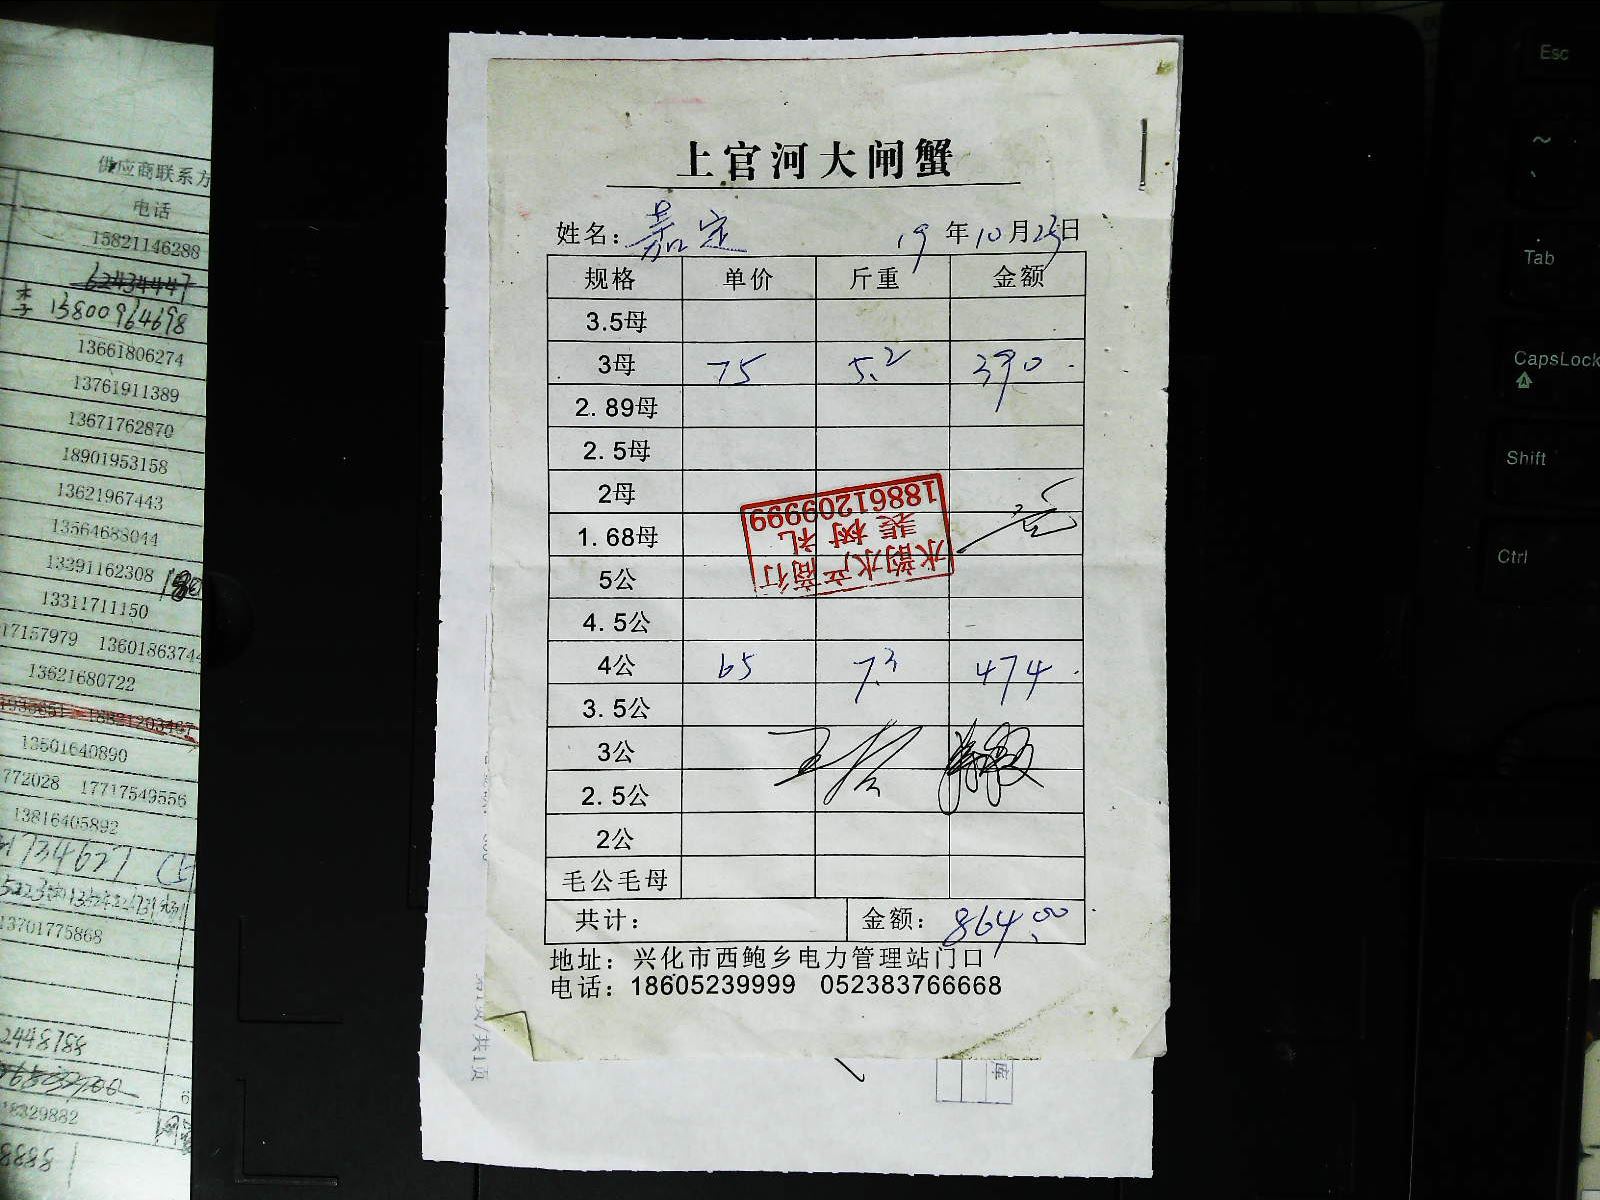 供应商联系方
电话
15821146288
62434447
李 13800964698
13661806274
13761911389
13671762870
18901953158
13621967443
13564688044
13391162308
13311711150
17157979 13601863744
13621680722
1935651 18821203467
13501640890
772028 17717549556
13816405892
1734627
13701775868
2448188
18329882
8888
上官河大闸蟹
姓名：嘉定 19年10月23日
规格 单价 斤重 金额
3.5母
3母 75 5.2 390
2.89母
2.5母
2母
1.68母
5公
4.5公
4公 65 7.3 474
3.5公
3公
2.5公
2公
毛公毛母
共计： 金额：864.00
地址：兴化市西鲍乡电力管理站门口
电话：18605239999 052383766668
水韵水产商行
裴树礼
18861209999
第1页/共1页
库
Esc
~
`
Tab
CapsLock
Shift
Ctrl